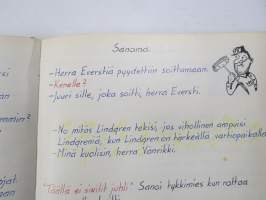 Sanoma.
-Herra Everstiä pyydettiin soittamaan.
-Kenelle?
-Juuri sille, joka soitti, herra Eversti.
-No mitäs Lindgren tekisi, jos vihollinen ampuisi
Lindgreniä, kun Lindgren on tärkeällä vartiopaikalla
-Minä kuolisin, herra Vänrikki.
"Täällä ei siviilit juhli" Sanoi tykkimies kun rottaa